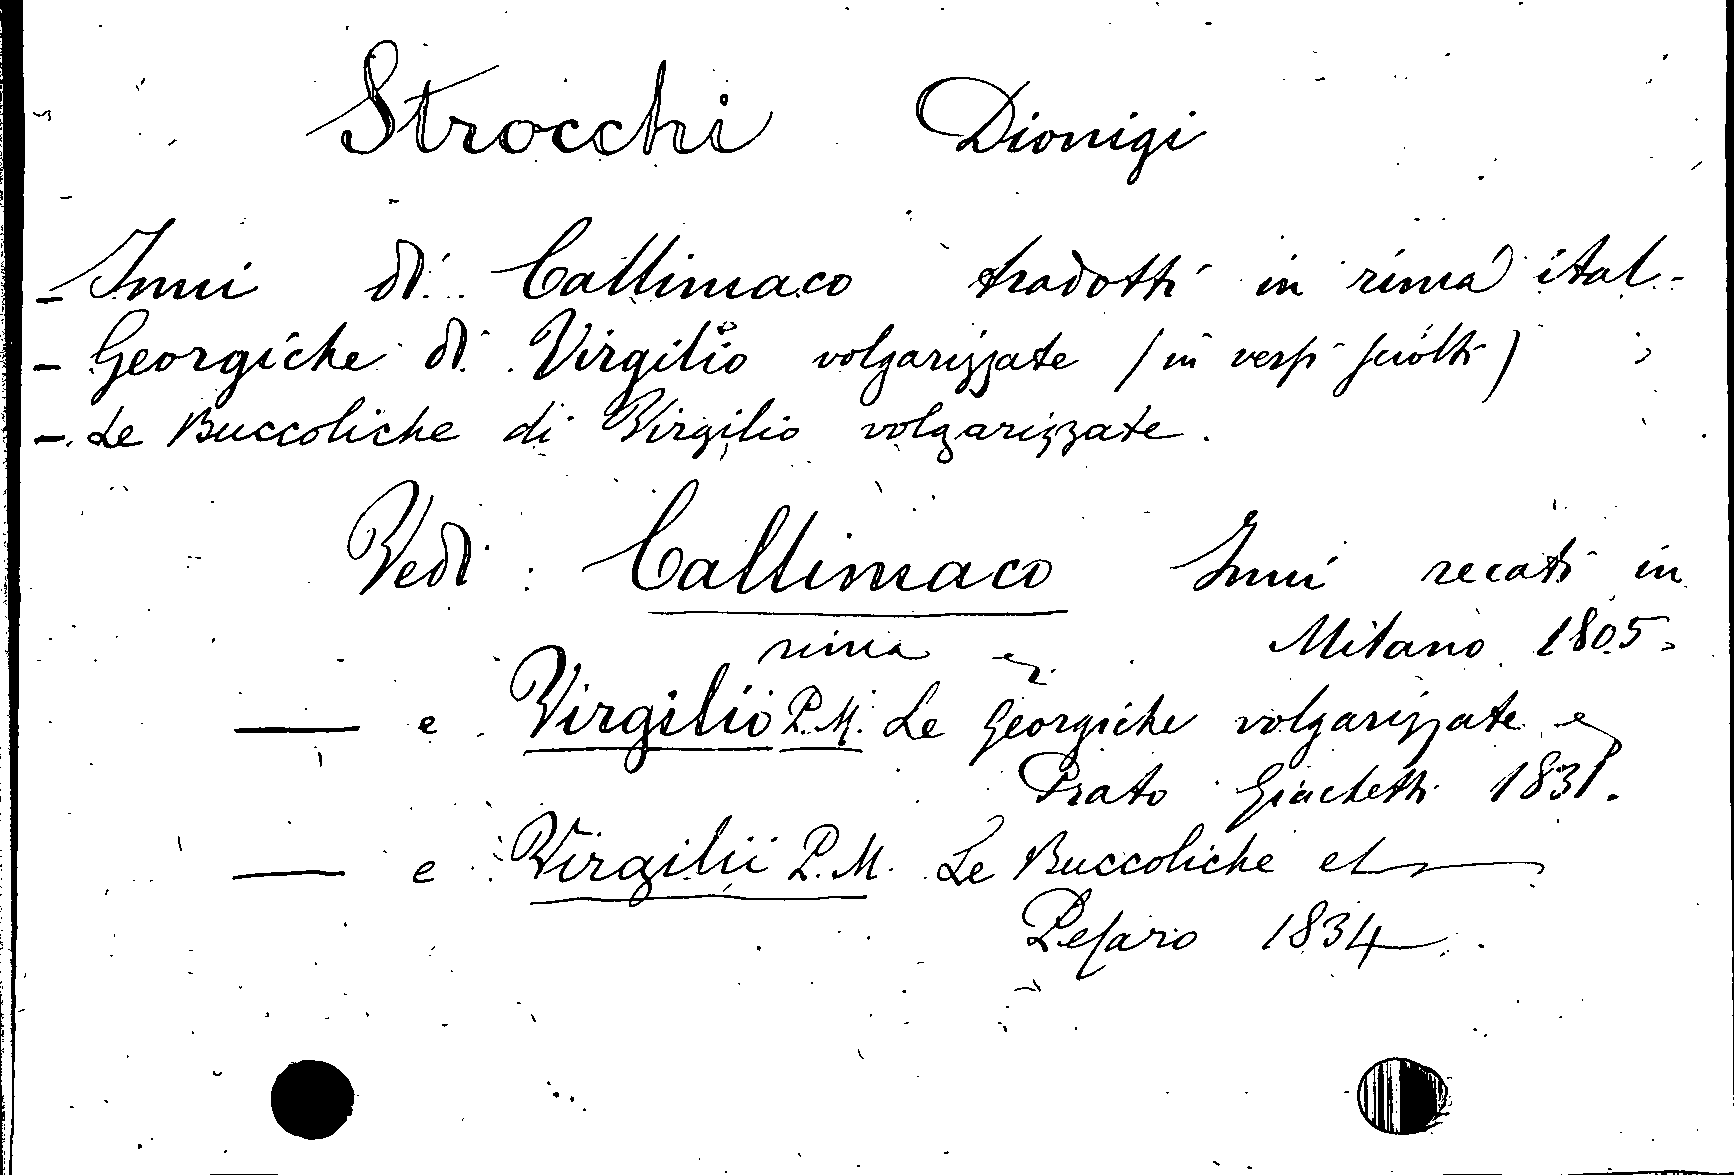 Strocchi Dionigi
- Inni di Callimaco tradotti in rima ital-
- Georgiche di Virgilio volgarizzate (in versi sciolti)
- Le Buccoliche di Virgilio volgarizzate.
Vedi: Callimaco Inni recati in
rima e Milano 1805.
— e Virgilio P.M. Le Georgiche volgarizzate e
Prato Giachetti 1831.
— e Virgilii P.M. Le Buccoliche et
Pesaro 1834